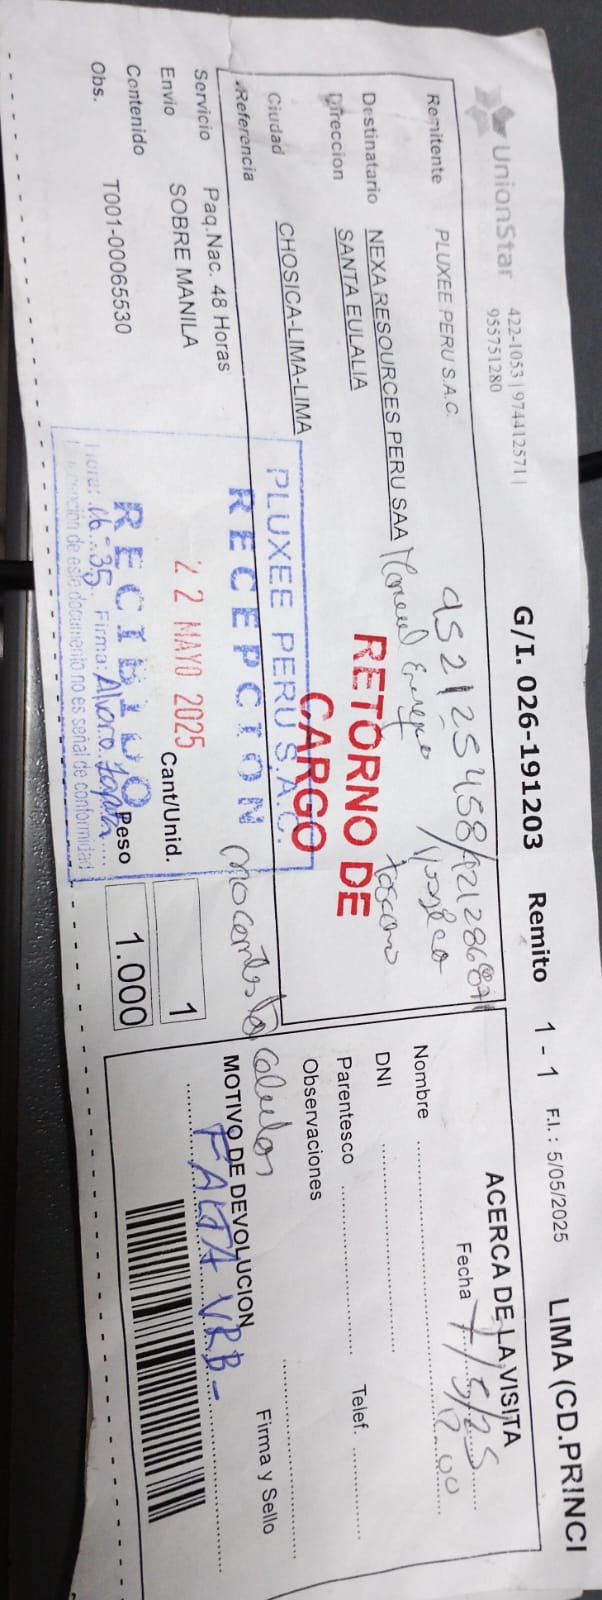 UnionStar
422-1053 | 974412571 |
955751280
G/I. 026-191203 Remito 1 - 1 F.I.: 5/05/2025 LIMA (CD.PRINCI
Remitente PLUXEE PERU S.A.C.
Destinatario NEXA RESOURCES PERU SAA
Direccion SANTA EULALIA
Ciudad CHOSICA-LIMA-LIMA
Referencia
Servicio Paq.Nac. 48 Horas
Envio SOBRE MANILA
Contenido
Obs. T001-00065530
952125458/
RETORNO DE
CARGO
PLUXEE PERU S.A.C.
RECEPCION
22 MAYO 2025
RECIBIDO
Hora: 16:35 Firma: Alvaro
recepción de este documento no es señal de conformidad
Cant/Unid. 1
Peso 1.000
no contesta
celular
ACERCA DE LA VISITA
Fecha 7/5/25
Nombre
DNI
Parentesco Telef.
Observaciones
MOTIVO DE DEVOLUCION Firma y Sello
FALTA URB-